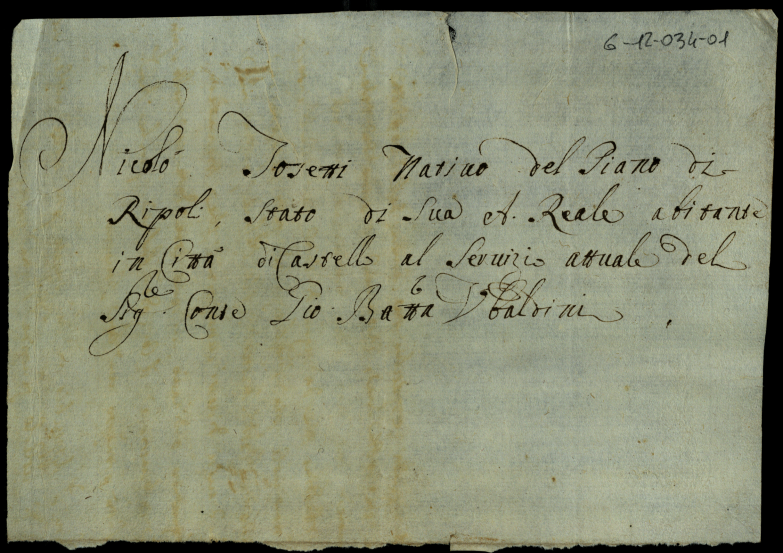 6-12-034-01
Nicolò Tosetti Nativo del Piano di
Ripoli, Stato di Sua A. Reale abitante
in Città di Castello al Servizio attuale del
Sig.le Conte Gio Batta Ubaldini